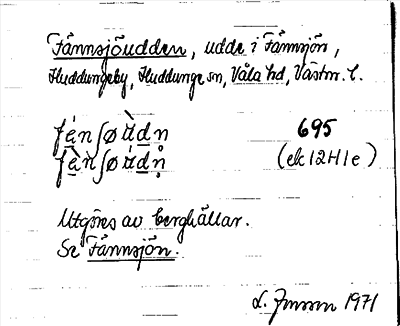 Fännsjöudden, udde i Fännsjön,
Huddungeby, Huddunge sn, Våla hd, Västm. l.
695
(ek 12H1e)
Utgöres av berghällar.
Se Fännsjön.
1971